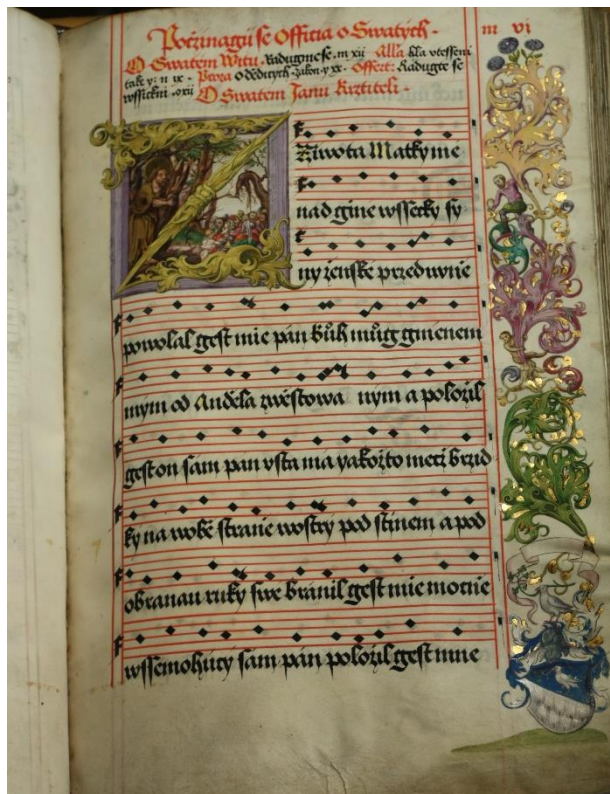 Počzinagij se Officia o Swatych ·
m vi
O Swatem Witu · Radugmese · m xii · Alla
take y: n ix · Prosa O dědicých · zákon · y xx · Offert: Radugte se
wssickni · O Swatem Janu Krztiteli ·
Z Ziwota Matky me
nad gine wssecky sy
ny zenske przediwnie
powolal gest mie pán bůh můg gmenem
mým od Anděla zwěstowa ným a položil
gest on sám pán vsta má yakožto mecz brzid
ký na wobě stranie wostrý pod stinem a pod
obranau ruký swe bránil gest mie mocnie
wssemohúcý sám pán položil gest mne